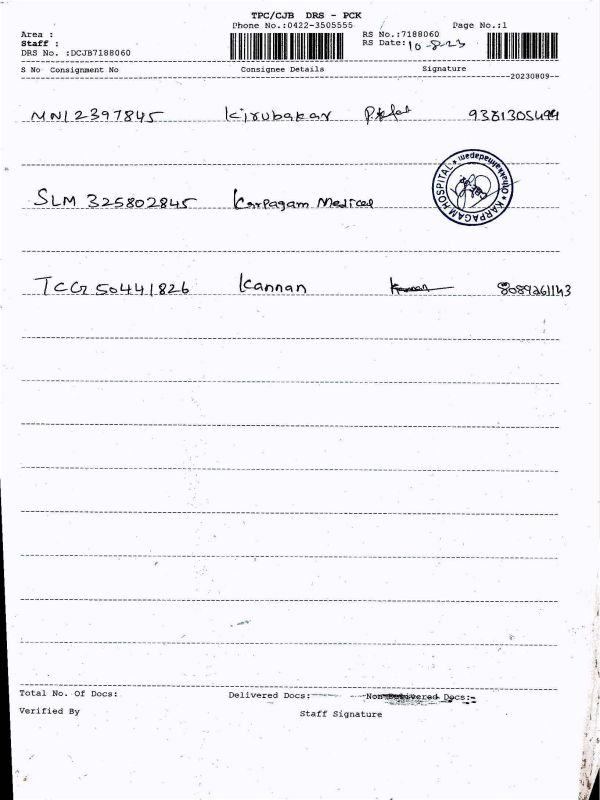 TPC/CJB DRS - PCK
Phone No.:0422-3505555 Page No.:1
Area : RS No.:7188060
Staff : RS Date: 10-8-23
DRS No. :DCJB7188060
S No Consignment No Consignee Details Signature
20230809
MNI 2397845 Kirubakar 9381305499
KARPAGAM HOSPITAL * Ottakkalmandapam *
SLM 325802845 Karpagam Medical
TCG 50441826 Kannan Kannan 8089261143
Total No. Of Docs: Delivered Docs: Non Delivered Docs:
Verified By Staff Signature